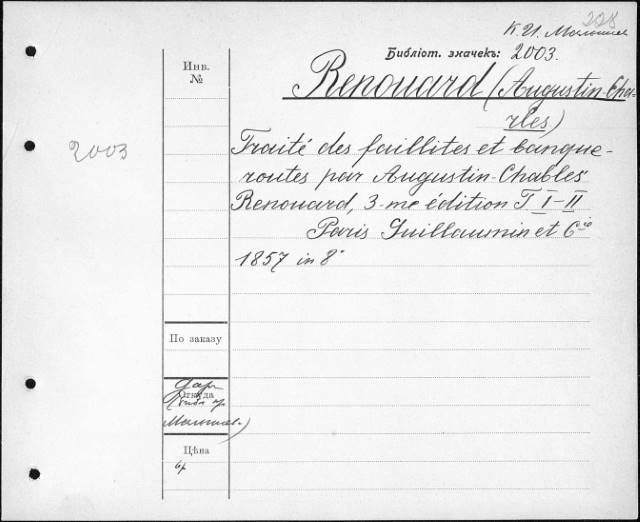 228
К. И. Малышев
Библіот. значекъ: 2003.
Инв.
№
Renouard (Augustin-Char-
rles)
2003
Traité des faillites et banque-
routes par Augustin-Chables
Renouard, 3-me édition T I-II
Paris Guillaumin et Cie
1857 in 8°
По заказу
Дар
Откуда
Малышев)
Цѣна
6р